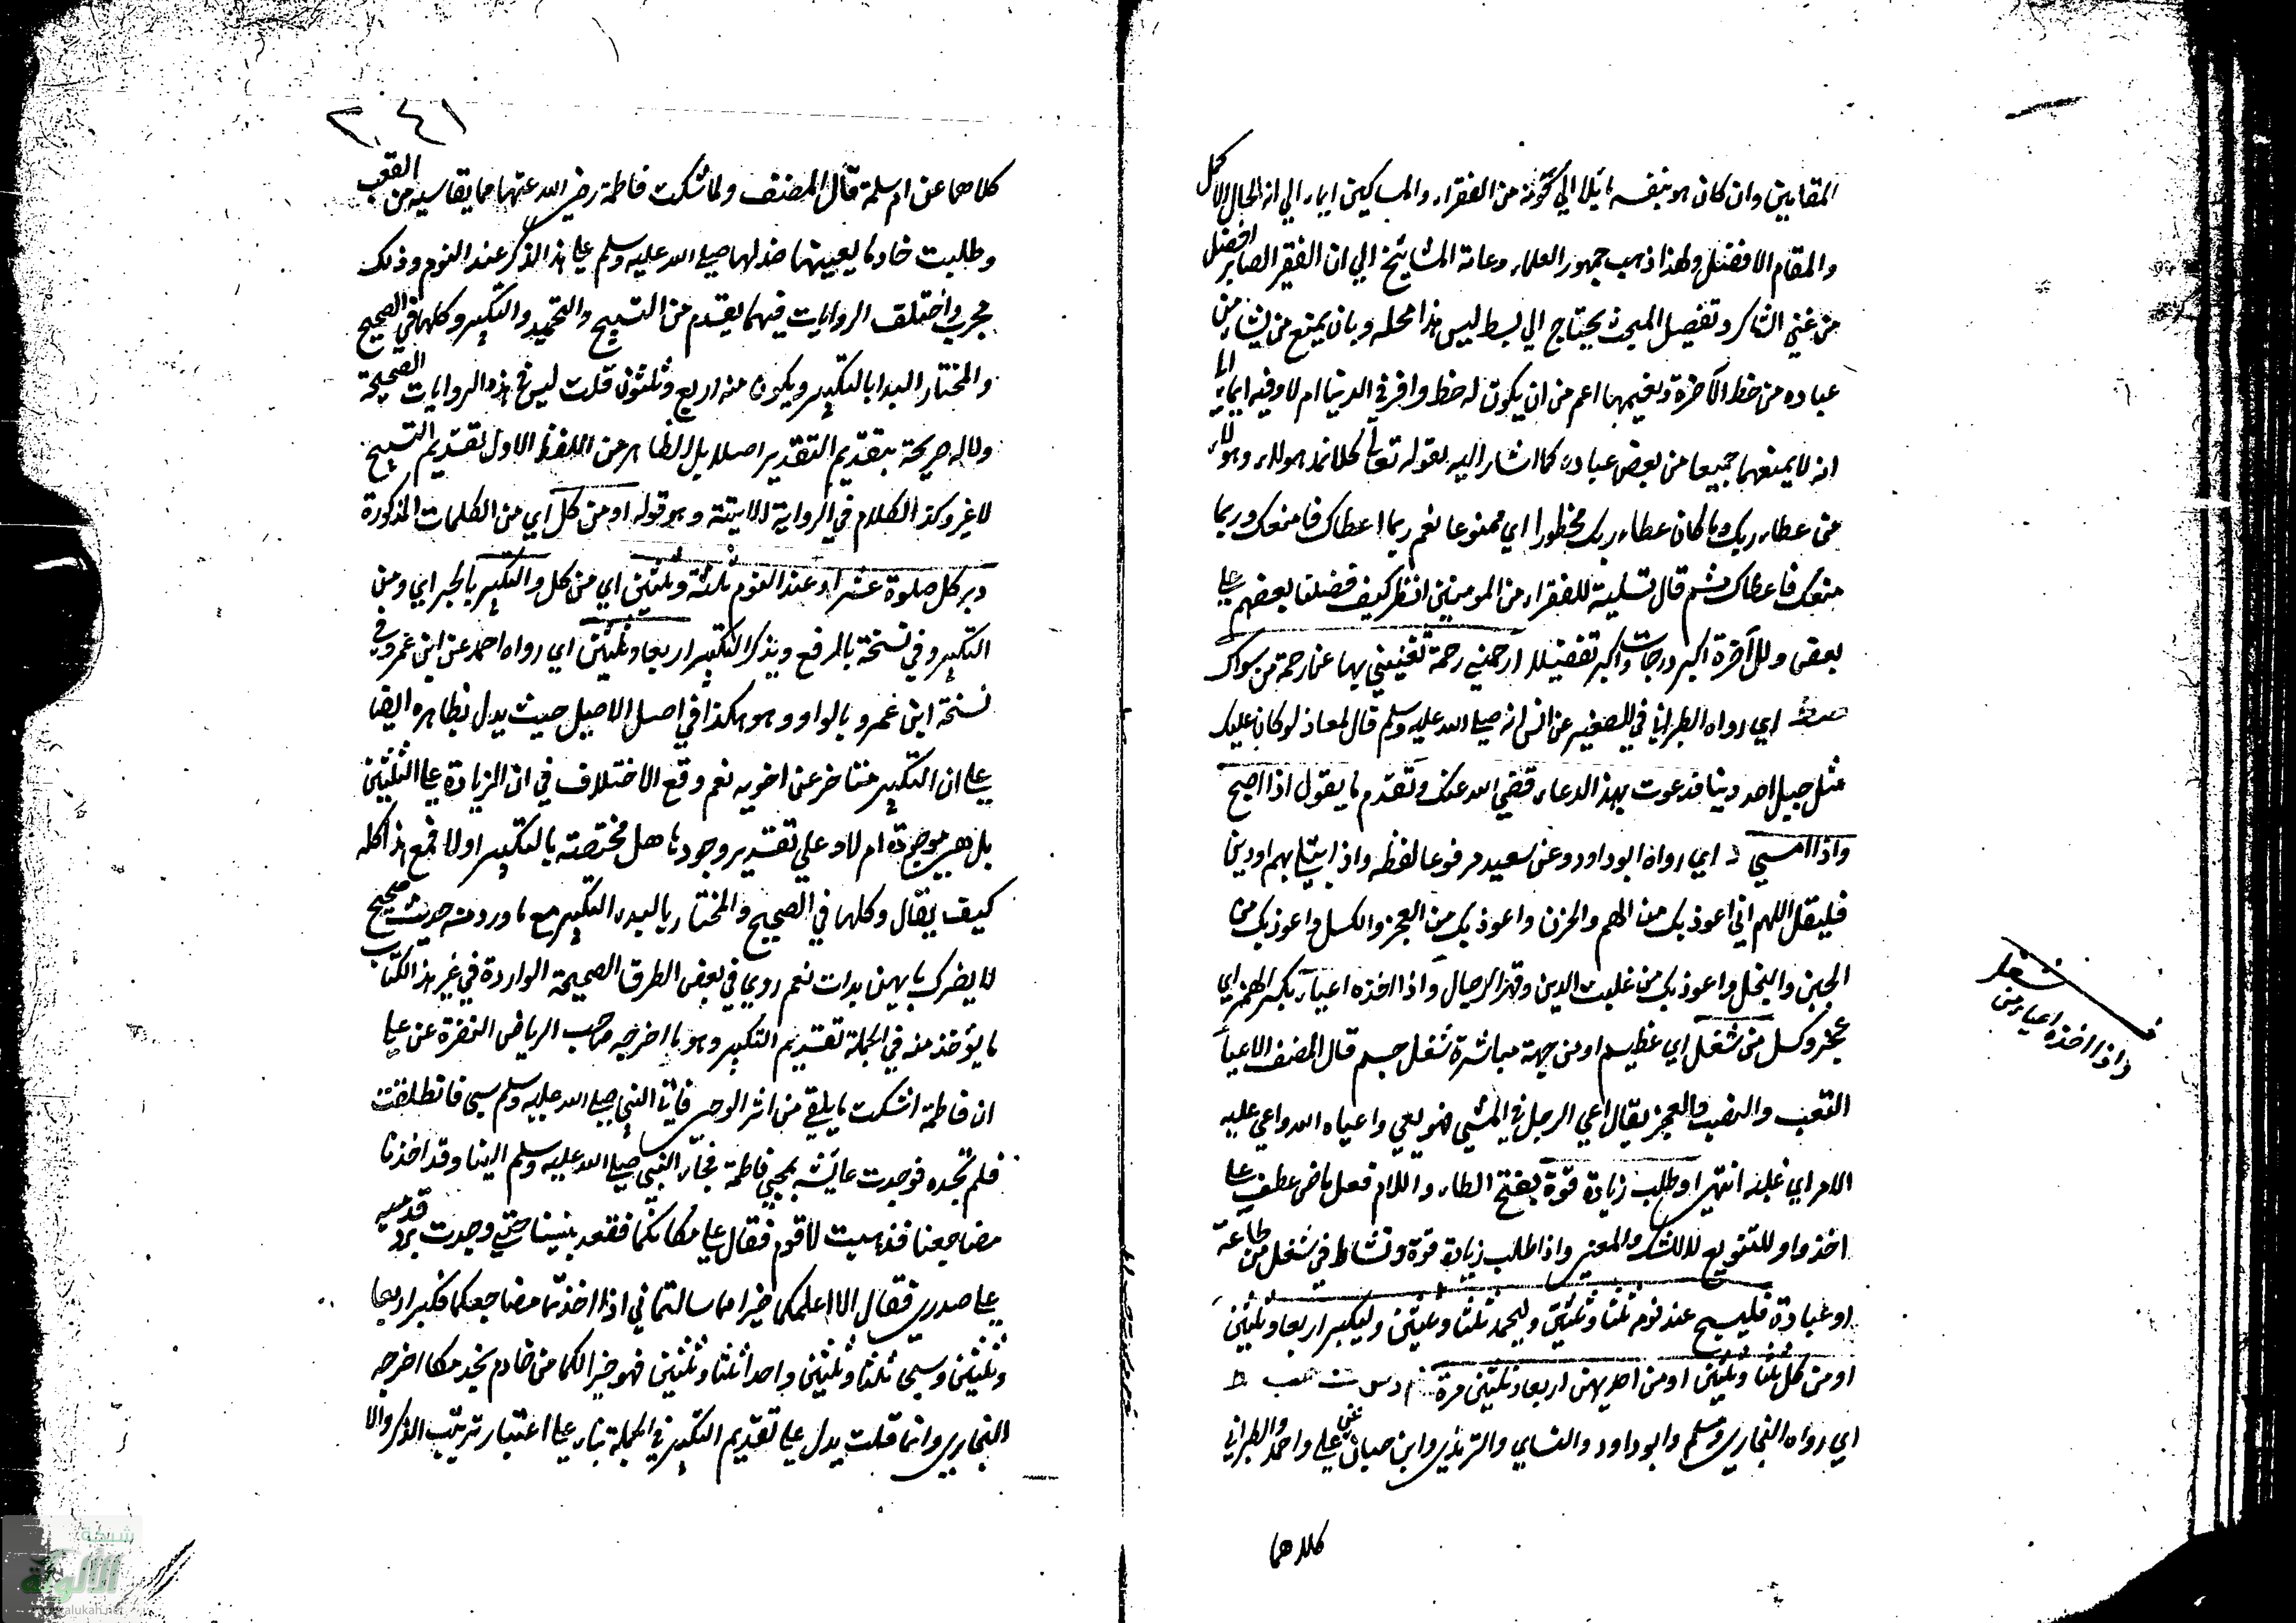 المقامين وان كان هو بنفسه مائلا الي كونه من الفقراء والمساكين ايماء الي انه الحال الاكمل
والمقام الافضل ولهذا ذهب جمهور العلماء وعامة المشائخ الي ان الفقير الصابر افضل
من غني الشاكر وتفصيل المبحث يحتاج الي بسط ليس هذا محله وبان يمنع من يشاء من
عباده من حظ الآخرة ونعيمها اعم من ان يكون له حظ وافر في الدنيا ام لا وفيه ايماء الى
انه لا يمنعهما جميعا من بعض عباده كما اشار اليه بقوله تعالى كلا نمد هولاء وهولاء
من عطاء ربك وما كان عطاء ربك محظورا اي ممنوعا نعم ربما اعطاك فامنعك وربما
منعك فاعطاك ثم قال تسلية للفقراء من المومنين انظر كيف فضلنا بعضهم على
بعض وللآخرة اكبر درجات واكبر تفضيلا ارحمني رحمة تغنيني بها عن رحمة من سواك
صط اي رواه الطبراني في الصغير عن انس انه صلى الله عليه وسلم قال لمعاذ لو كان عليك
مثل جبل احد دينا فدعوت بهذا الدعاء قضي الله عنك وتقدم ما يقول اذا اصبح
واذا امسي د اي رواه ابو داود وعن سعيد مرفوعا لفظه واذا ابتلي بهم او دين
فليقل اللهم اني اعوذ بك من الهم والحزن واعوذ بك من العجز والكسل واعوذ بك من
الجبن والبخل واعوذ بك من غلبت الدين وقهر الرجال واذا اخذه اعياء بكسر الهمز اي
عجز وكسل من شغل اي عظيم او من جهة مباشرة شغل جسم قال المصنف الاعيا
التعب والنصب والعجز يقال اعي الرجل في المشي فهو يعي واعياه الله واعي عليه
الامر اي غلبه انتهي او طلب زيادة قوة بفتح الطاء واللام فعل ماض عطف على
اخذ واو للتنويع لا للشك والمعني واذا طلب زيادة قوة ونشاط في شغل من طاعة
او عبادة فليسبح عند نومه ثلثا وثلثين وليحمد ثلثا وثلثين وليكبر اربعا وثلثين
او من كل ثلثا وثلثين او من احديهن اربعا وثلثين مرة خ م د س ت حب ط
اي رواه البخاري ومسلم وابو داود والنساي والترمذي وابن حبان عن علي واحمد والطبراني
كلاهما
شغل
واذا اخذه اعياء من
٢٠٤١
كلاهما عن ام سلمة قال المصنف ولما شكت فاطمة رضي الله عنها مما يقاسيه من التعب
وطلبت خادما يعينها فدلها صلي الله عليه وسلم علي هذا الذكر عند النوم وذلك
مجرب واختلف الروايات فيهما يقدم من التسبيح والتحميد والتكبير وكلها في الصحيح
والمختار البدا بالتكبير ويكون منه اربع وثلثون قلت ليس في هذه الروايات الصحيحة
دلاله صريحة بتقديم التقدير اصلا بل الظاهر من اللفظ الاول تقديم التسبيح
لا غير وكذا الكلام في الرواية الاتيته وهو قوله او من كل اي من الكلمات المذكورة
دبر كل صلوة عشرا وعند النوم ثلثة وثلثين اي من كل والتكبير بالجر اي ومن
التكبير وفي نسخة بالرفع ويذكر التكبير اربعا وثلثين اي رواه احمد عن ابن عمر وفي
نسخة ابن عمرو بالواو وهو هكذا في اصل الاصيل حيث يدل بظاهره ايضا
علي ان التكبير متاخر عن اخويه نعم وقع الاختلاف في ان الزيادة علي الثلثين
بل هي موجودة ام لا وعلي تقدير وجودها هل مختصته بالتكبير اولا فمع هذا كله
كيف يقال وكلها في الصحيح والمختار بالبدء التكبير مع ما ورد منه حديث صحيح
لا يضرك بايهن بدات نعم روي في بعض الطرق الصحيحة الواردة في غير هذا الكتاب
ما يؤخذ منه في الجملة تقديم التكبير وهو ما اخرجه صاحب الرياض النضرة عن علي
ان فاطمة اشكت ما يلقي من اثر الرحي فاتا النبي صلي الله عليه وسلم سبي فانطلقت
فلم تجده فوجدت عايشه بمجيي فاطمة فجاء النبي صلي الله عليه وسلم الينا وقد اخذنا
مضاجعنا فذهبت لاقوم فقال علي مكانكما فقعد بيننا حتي وجدت برد قدميه
علي صدري فقال الا اعلمكما خيرا مما سالتماني اذا اخذتما مضاجعكما فكبرا اربعا
وثلثين وسبحا ثلثا وثلثين واحمدا ثلثا وثلثين فهو خير لكما من خادم يخدمكما اخرجه
البخاري وانما قلت يدل علي تقديم التكبير في الجملة بناء علي اعتبار ترتيب الذكر والا
شبكة
الألوكة
www.alukah.net